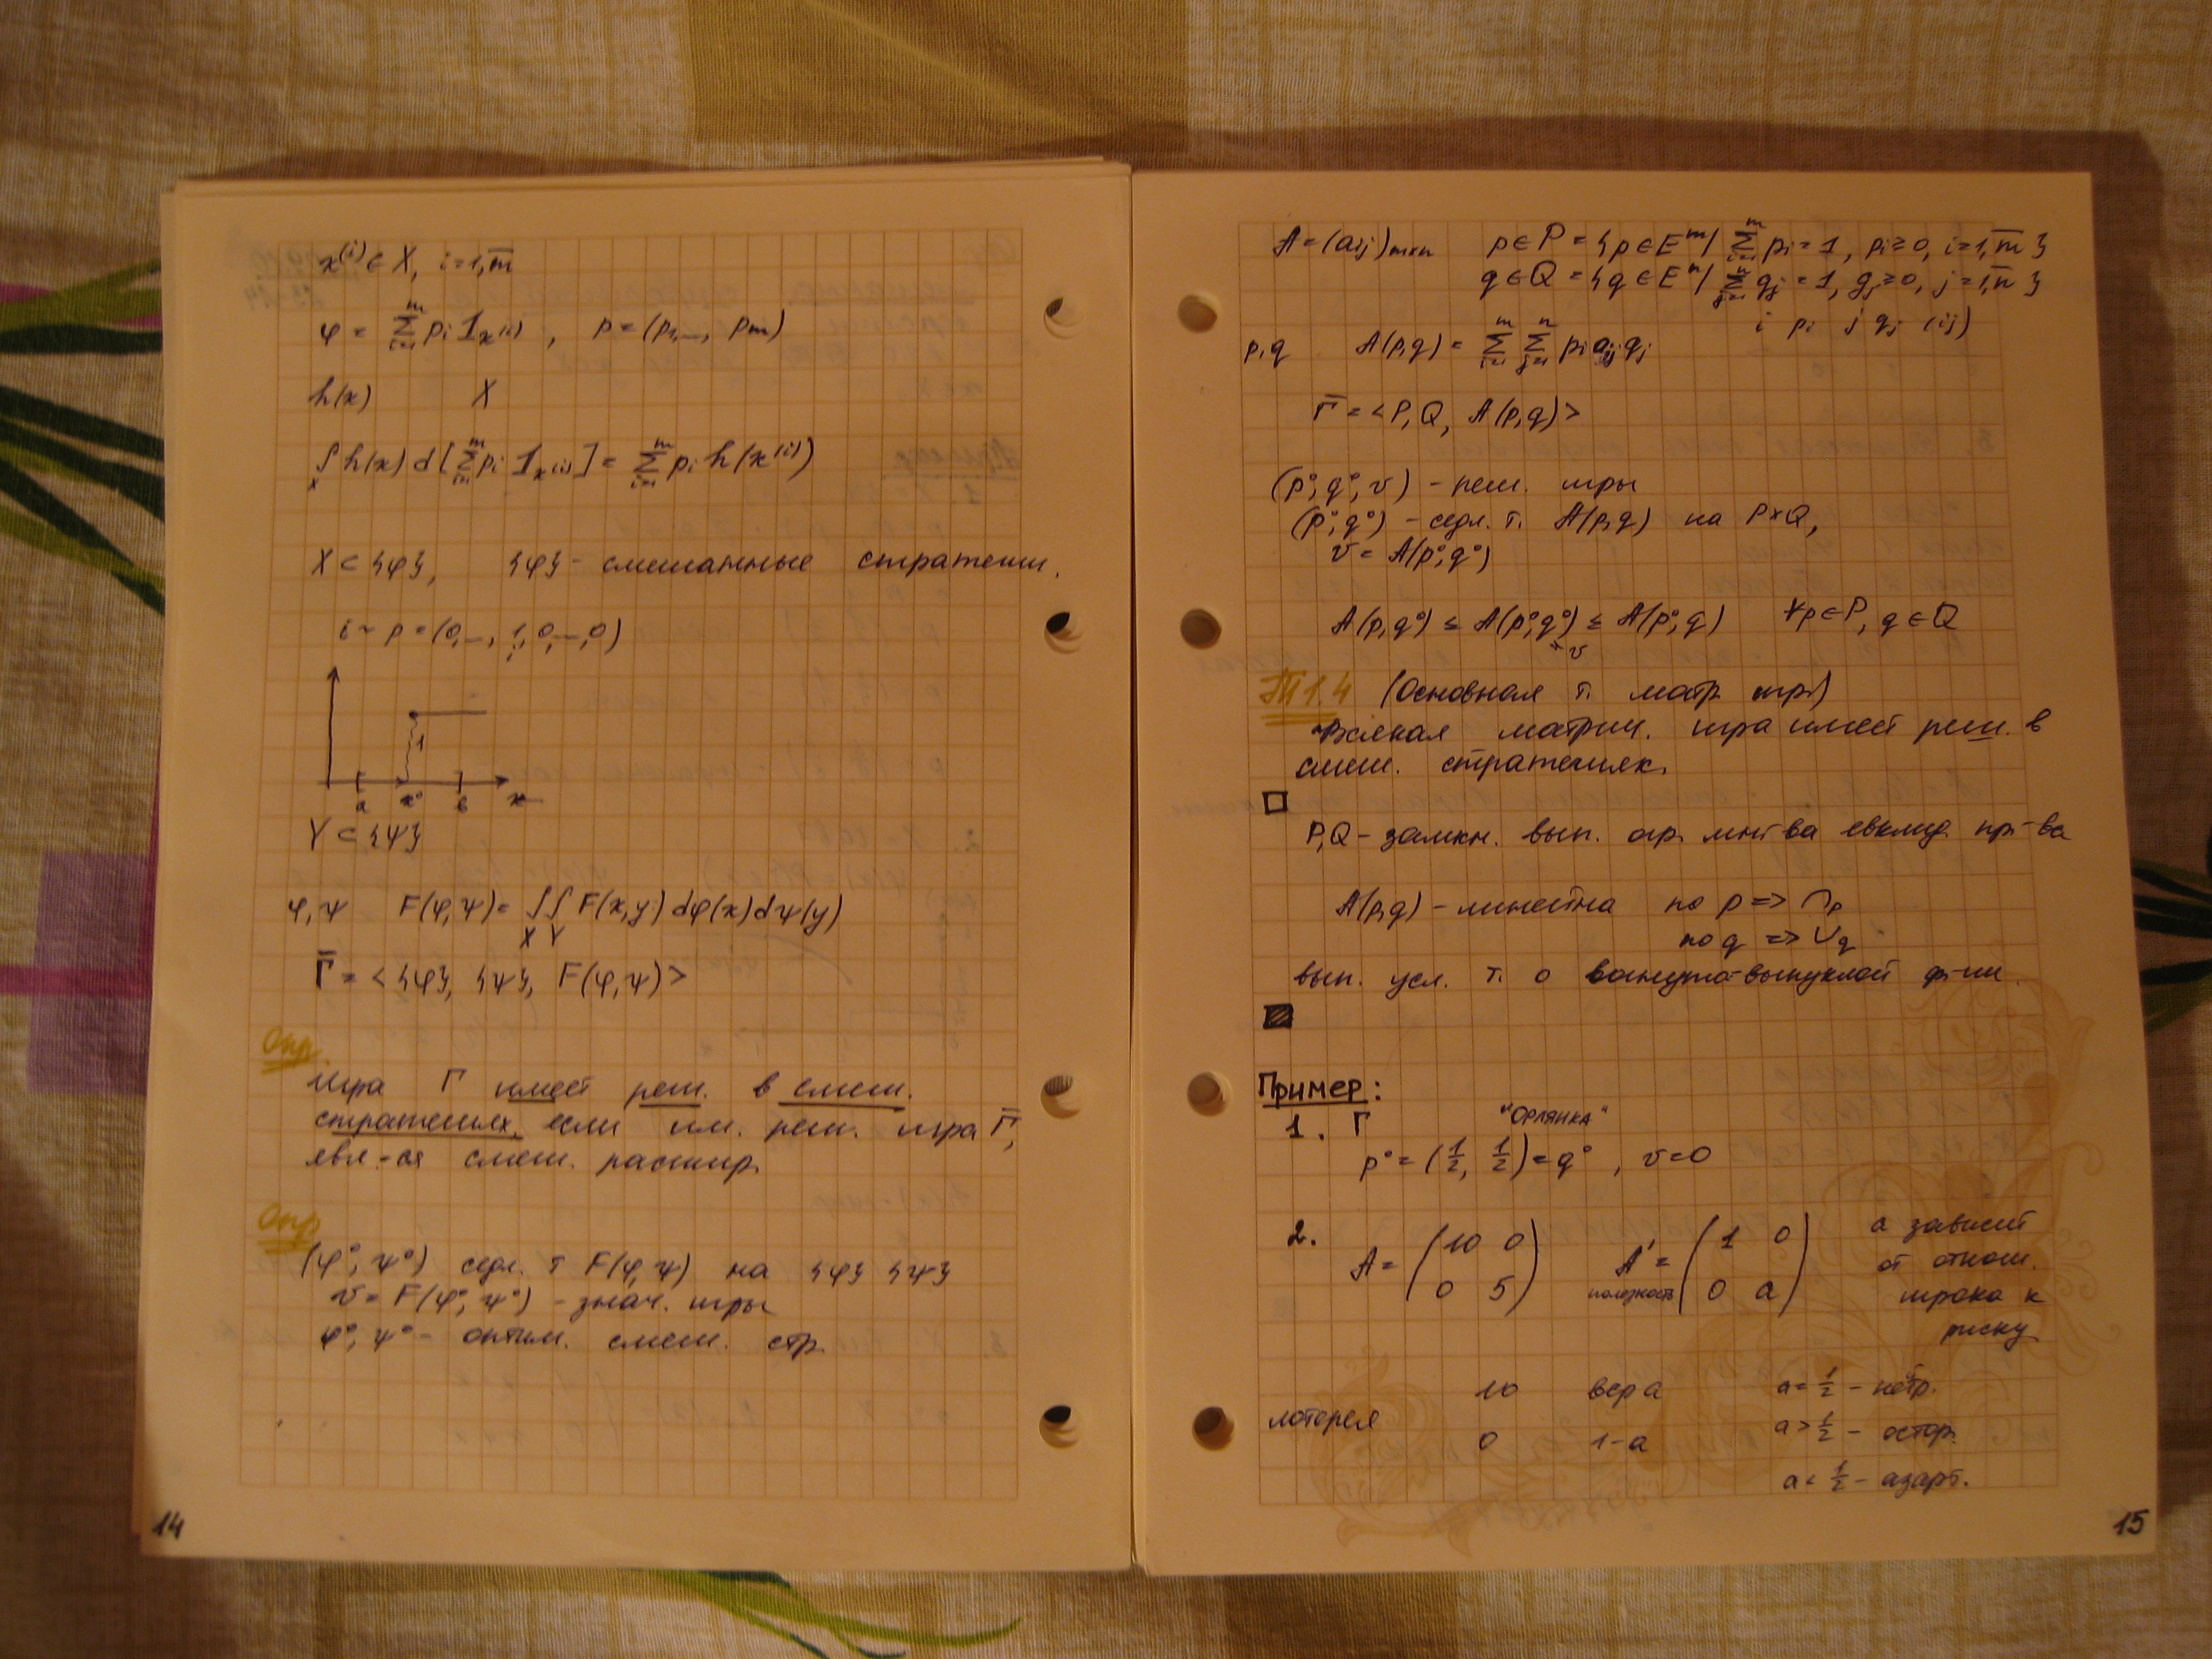 x⁽ⁱ⁾ ∈ X, i=1,m̅
φ = Σᵢ₌₁ᵐ pᵢ I_x⁽ⁱ⁾ , p=(p₁,..., pₘ)
h(x) X
∫_X h(x) d[Σᵢ₌₁ᵐ pᵢ I_x⁽ⁱ⁾] = Σᵢ₌₁ᵐ pᵢ h(x⁽ⁱ⁾)
X ⊂ {φ}, {φ} - смешанные стратегии.
i ~ p = (0,..., 1, 0,...,0)
i
1
a x° b x
Y ⊂ {ψ}
φ, ψ F(φ,ψ) = ∫_X ∫_Y F(x,y) dφ(x)dψ(y)
Γ̅ = <{φ}, {ψ}, F(φ,ψ)>
Опр.
Игра Γ имеет реш. в смеш.
стратегиях, если им. реш. игра Γ̅,
явл-ся смеш. расшир.
Опр
(φ°, ψ°) седл. т F(φ,ψ) на {φ} {ψ}
v = F(φ°, ψ°) - знач. игры
φ°, ψ° - оптим. смеш. стр.
14
A = (aᵢⱼ)ₘₓₙ p ∈ P = {p ∈ Eᵐ | Σᵢ₌₁ᵐ pᵢ = 1, pᵢ ≥ 0, i=1,m̅}
q ∈ Q = {q ∈ Eⁿ | Σⱼ₌₁ⁿ qⱼ = 1, qⱼ ≥ 0, j=1,n̅}
i pᵢ j qⱼ (ij)
p,q A(p,q) = Σᵢ₌₁ᵐ Σⱼ₌₁ⁿ pᵢ aᵢⱼ qⱼ
Γ̅ = <P, Q, A(p,q)>
(p°, q°, v) - реш. игры
(p°, q°) - седл. т. A(p,q) на P×Q,
v = A(p°, q°)
A(p,q°) ≤ A(p°,q°) ≤ A(p°,q) ∀p ∈ P, q ∈ Q
v
Т 1.4 (Основная т. матр игр)
Всякая матрич. игра имеет реш. в
смеш. стратегиях.
□
P,Q - замкн. вып. огр. мн-ва евклид. пр-ва
A(p,q) - линейна по p => ∩ₚ
по q => ∪_q
вып. усл. т. о вогнуто-выпуклой ф-ии.
■
Пример:
1. Γ "ОРЛЯНКА"
p° = (1/2, 1/2) = q° , v=0
2. A = (10 0 A' = (1 0 а зависит
0 5) полезность 0 a) от отнош.
игрока к
риску
10 вер a a = 1/2 - нейтр.
лотерея
0 1-a a > 1/2 - остор.
a < 1/2 - азарт.
15